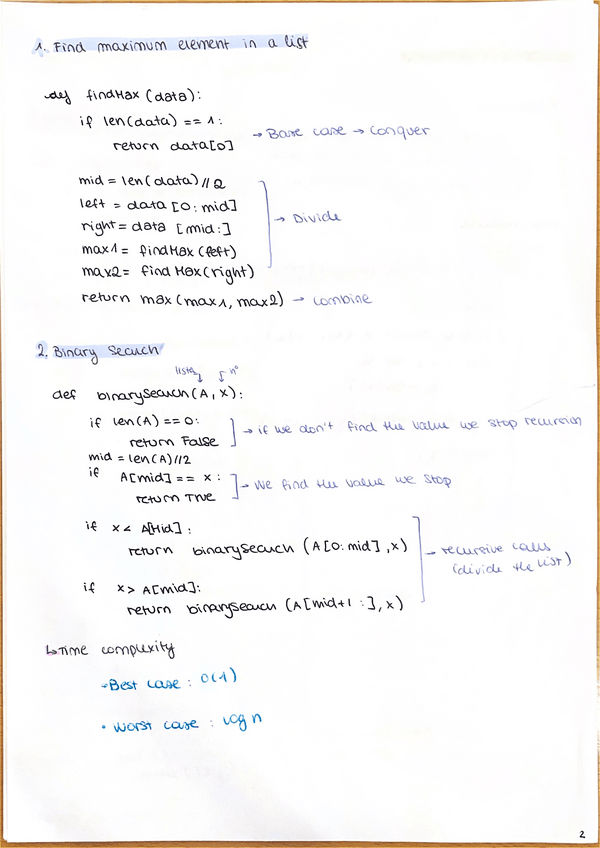 1. Find maximum element in a list
def findMax (data):
if len(data) == 1:
return data[0]
→ Base case → Conquer
mid = len(data)//2
left = data [0: mid]
right = data [mid:]
max1 = findMax (left)
max2 = findMax (right)
→ Divide
return max (max1, max2) → combine
2. Binary Search
lista nº
def binarySearch (A, x):
if len(A) == 0:
return False
→ if we don't find the value we stop recursion
mid = len(A)//2
if A[mid] == x:
return True
→ We find the value we stop
if x < A[Mid]:
return binarySearch (A[0:mid], x)
if x > A[mid]:
return binarySearch (A[mid+1 :], x)
→ recursive calls
(divide the list)
↳ Time complexity
- Best case : O(1)
• Worst case : log n
2